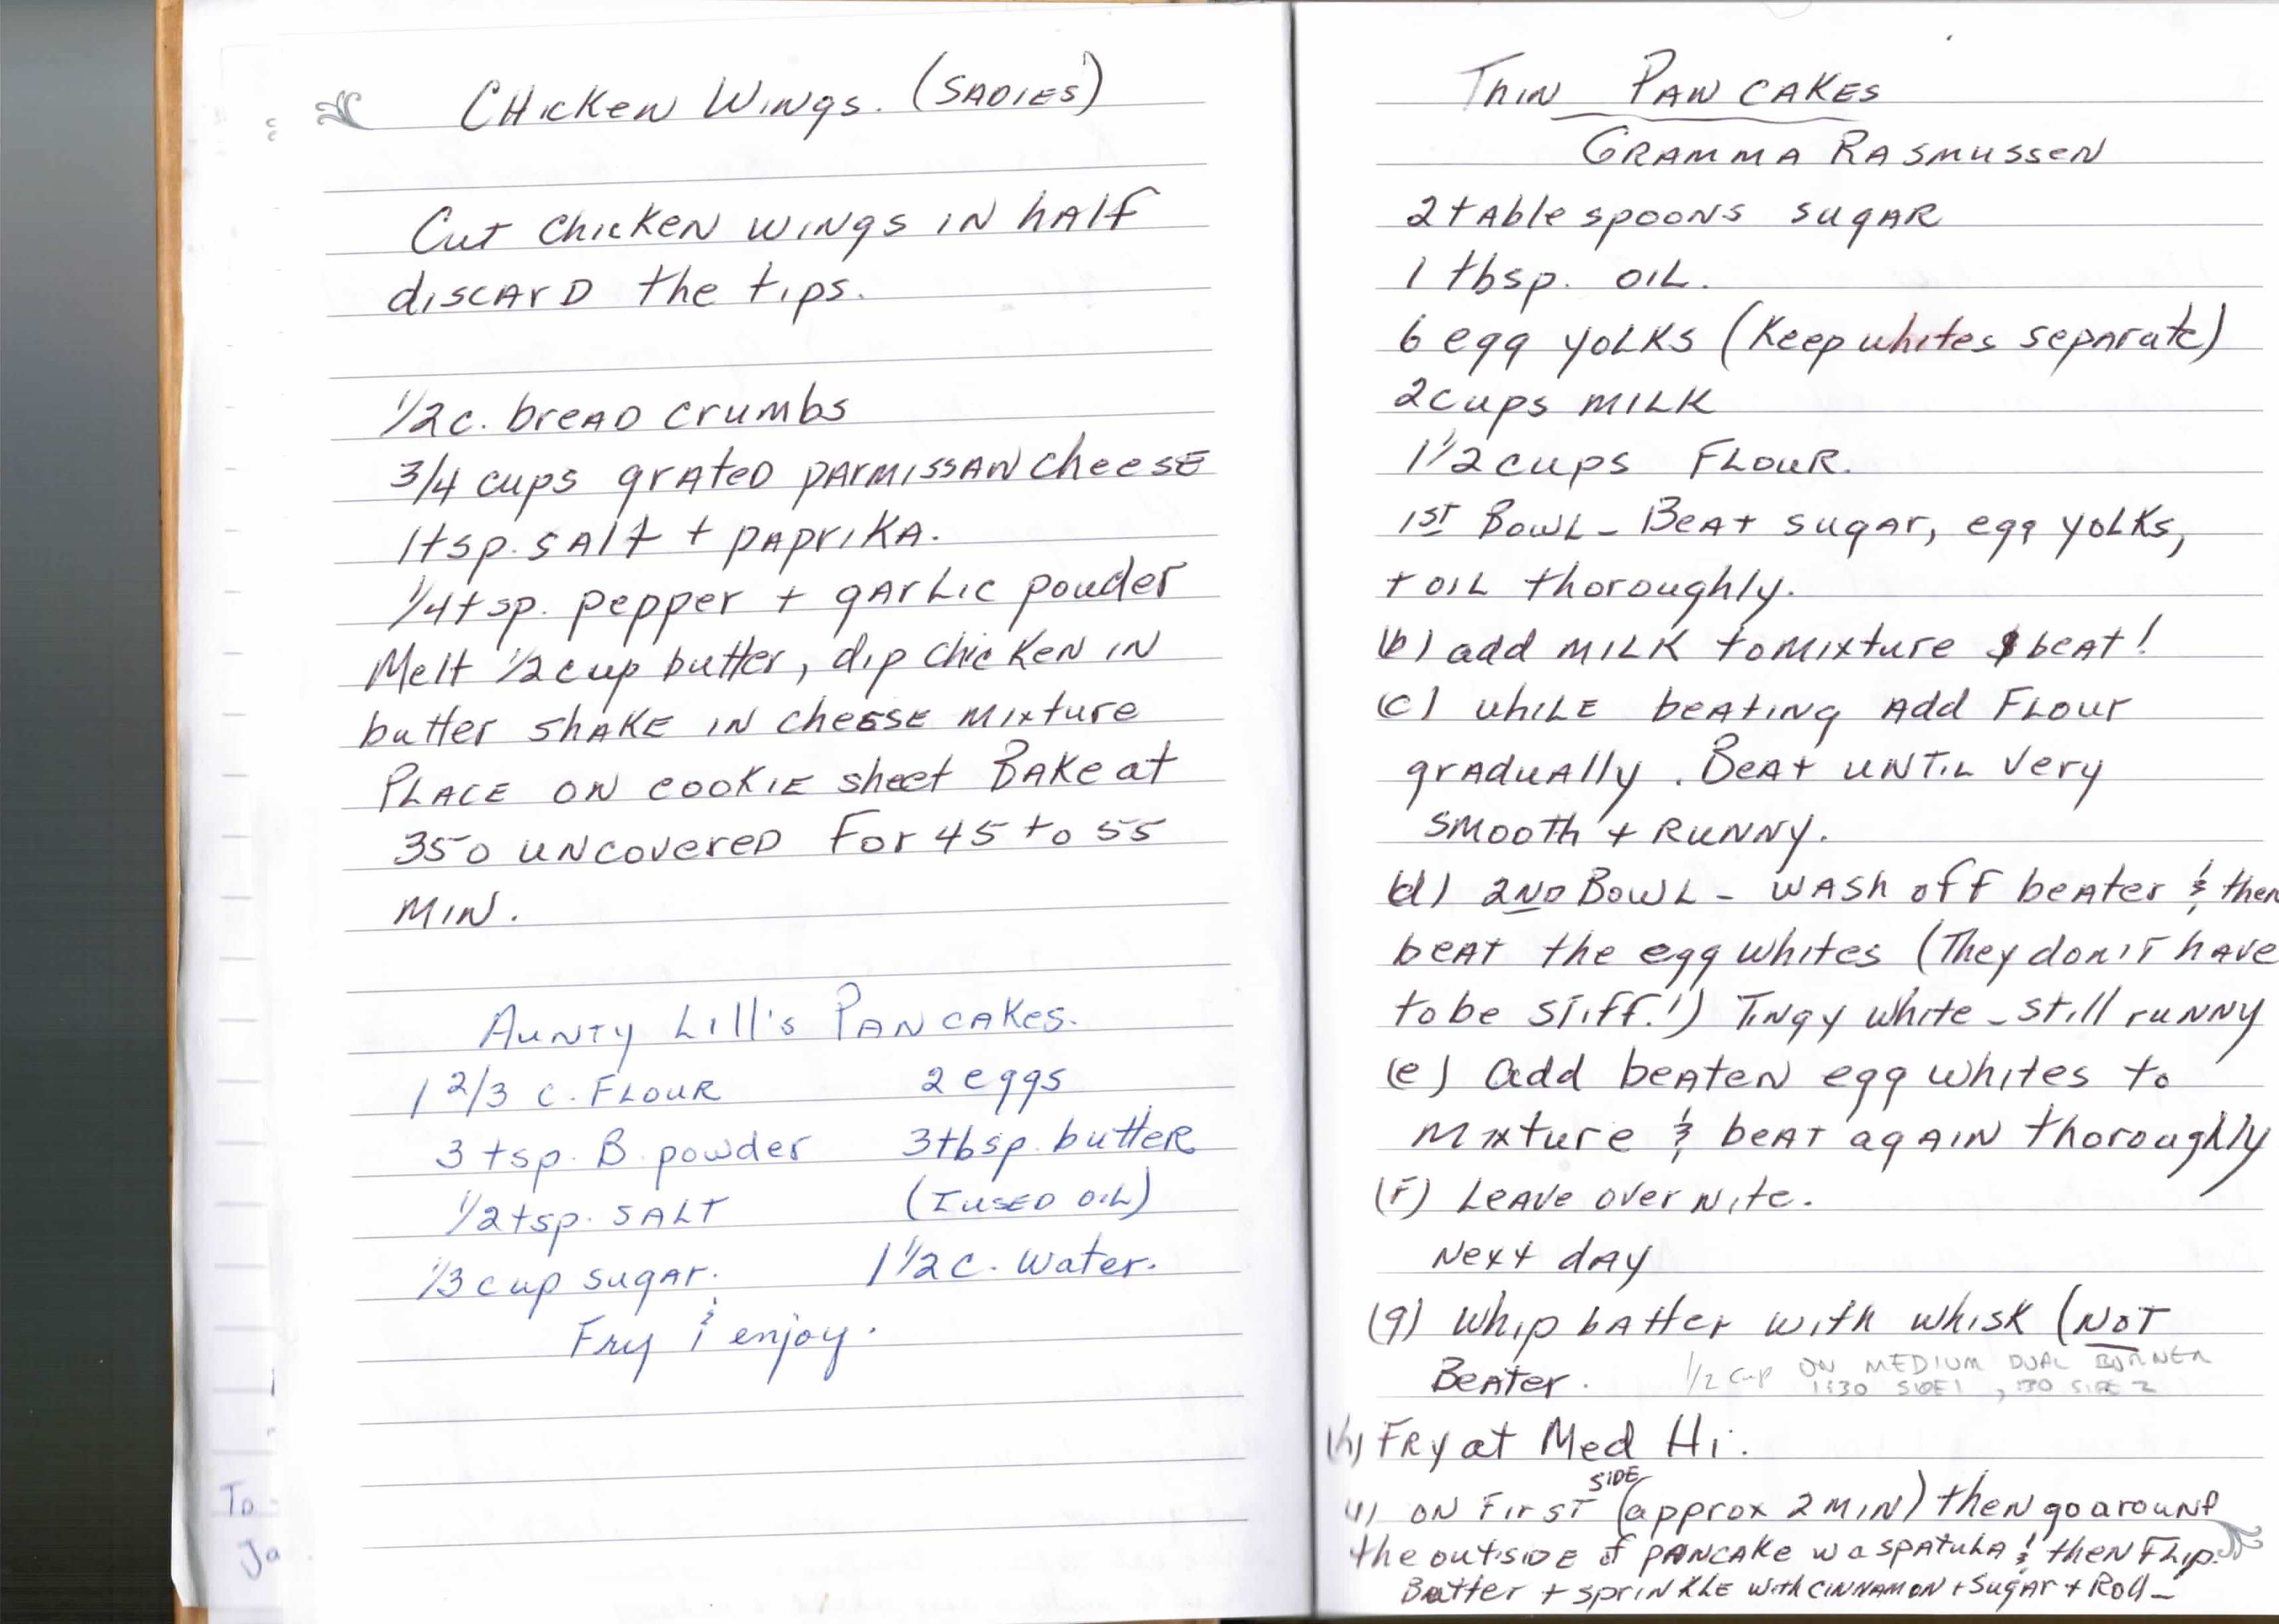 Chicken Wings. (Sadies)
Cut chicken wings in half
discard the tips.
1/2 c. bread crumbs
3/4 cups grated parmissan cheese
1 tsp. salt + paprika.
1/4 tsp. pepper + garlic powder
Melt 1/2 cup butter, dip chicken in
butter shake in cheese mixture
Place on cookie sheet Bake at
350 uncovered For 45 to 55
min.
Aunty Lill's Pancakes.
1 2/3 c. Flour 2 eggs
3 tsp. B. powder 3 tbsp. butter
1/2 tsp. salt (I used oil)
1/3 cup sugar. 1 1/2 c. water.
Fry & enjoy.
To
Ja
Thin Pancakes
Gramma Rasmussen
2 tablespoons sugar
1 tbsp. oil.
6 egg yolks (Keep whites separate)
2 cups milk
1 1/2 cups Flour.
1st Bowl - Beat sugar, egg yolks,
+ oil thoroughly.
(b) add milk to mixture & beat!
(c) while beating add Flour
gradually. Beat until very
smooth + runny.
(d) 2nd Bowl - wash off beater & then
beat the egg whites (They don't have
to be stiff!) Tingy white - still runny
(e) add beaten egg whites to
mixture & beat again thoroughly
(f) Leave over nite.
Next day
(g) whip batter with whisk (Not
Beater. 1/2 cup on medium dual burner
1:30 side 1, :30 side 2
(h) Fry at Med Hi.
on first side (approx 2 min) then go around
the outside of pancake w a spatula & then Flip.
Butter + sprinkle with cinnamon + sugar + Roll -